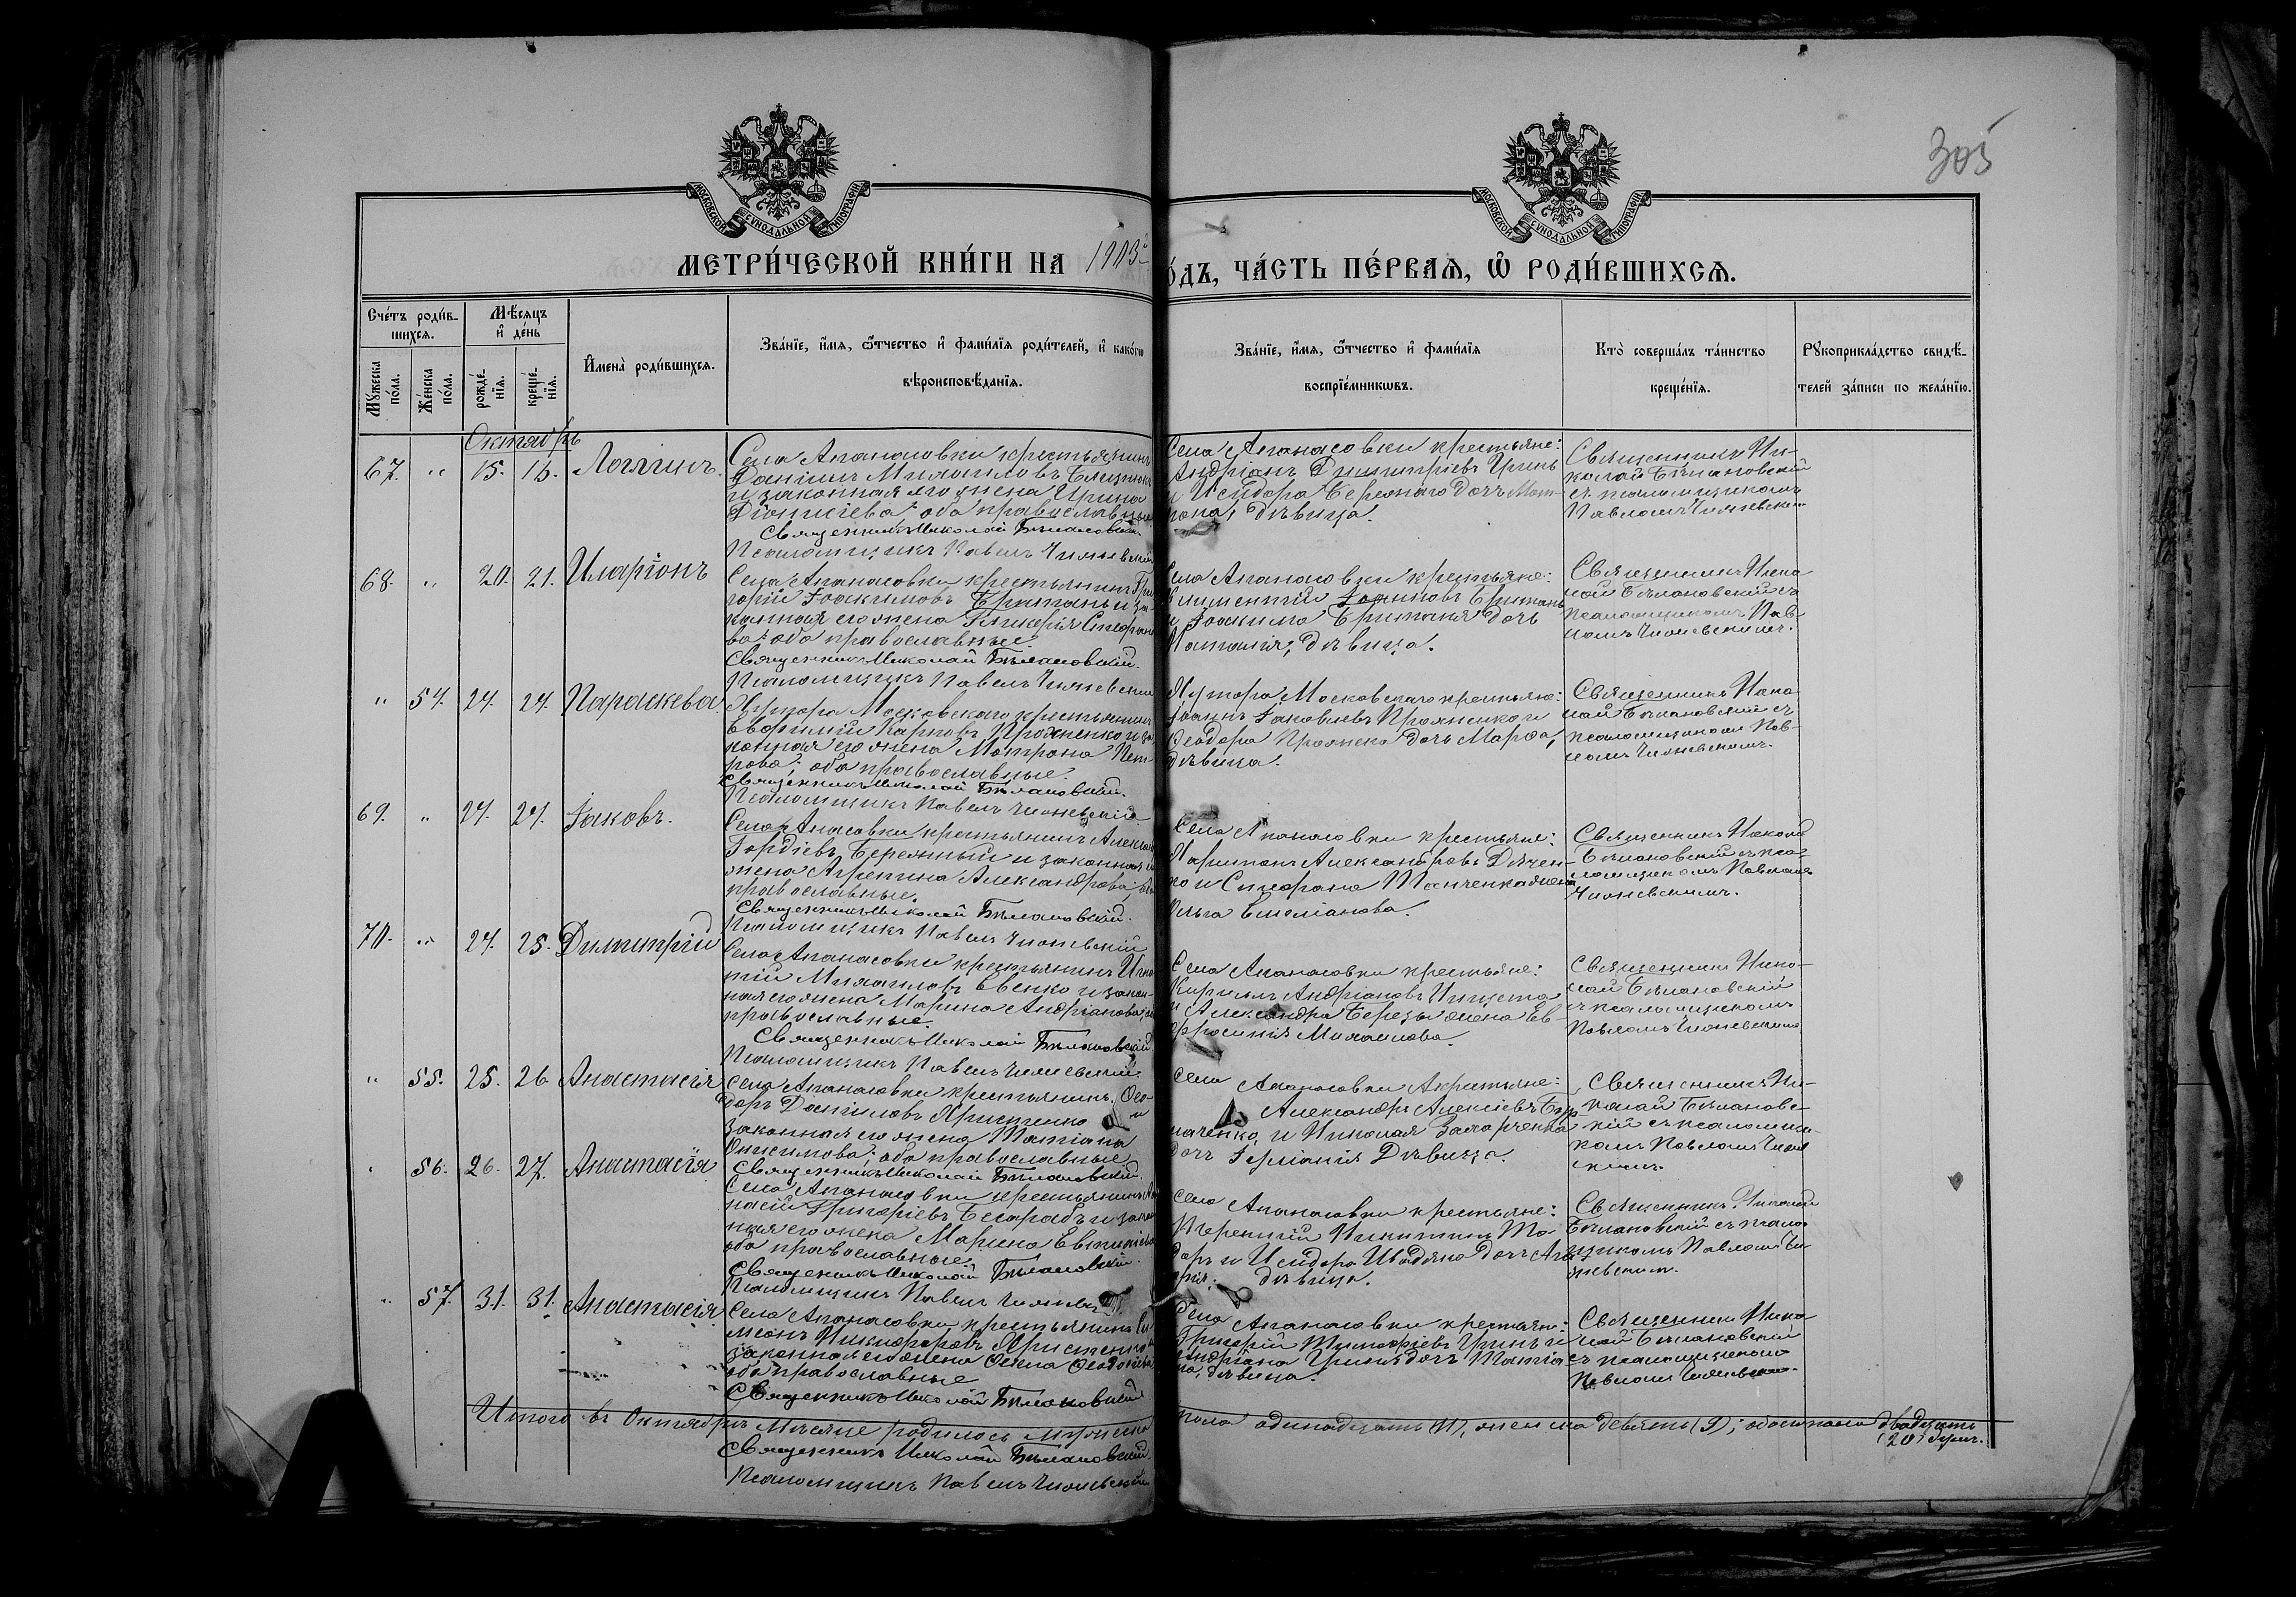 305
МОСКОВСКОЙ СѴНОДАЛЬНОЙ ТИПОГРАФІИ
МОСКОВСКОЙ СѴНОДАЛЬНОЙ ТИПОГРАФІИ
МЕТРИ́ЧЕСКОЙ КНИ́ГИ НА 1903 г
О́ДЪ, ЧА́СТЬ ПЕ́РВАѦ, Ѽ РОДИ́ВШИХСѦ.
Сче́тъ роди́в-
шихся.
Мꙋ́жеска по́ла.
Же́нска по́ла.
Мѣ́сяцъ
и҆ де́нь
рожде́-
нїя.
креще́-
нїя.
И҆мена̀ роди́вшихся.
Зва́нїе, и҆́мя, ѻ҆́тчество и҆ фами́лїя роди́телей, и҆ како́гѡ
вѣроисповѣ́данїя.
Зва́нїе, и҆́мя, ѻ҆́тчество и҆ фами́лїя
воспрїе́мникѡвъ.
Кто̀ соверша́лъ та́инство
креще́нїя.
Рꙋкоприкла́дство свидѣ́-
телей за́писи по жела́нїю.
Октябрь
67. " 15. 16. Логгинъ.
Села Апанасовки крестьянинъ
Даніилъ Михаиловъ
и законная его жена Ирина
Діонисіева: оба православные
Священникъ Николай Бѣлановскій.
Псаломщикъ Павелъ
Села Апанасовки крестьяне:
Андріанъ Димитріевъ Гринь
и Исидора Бережнаго дочь Мат-
рона, дѣвица.
Священникъ Ни-
колай Бѣлановскій
съ псаломщикомъ
Павломъ
68. " 20. 21. Иларіонъ
Села Апанасовки крестьянинъ Гри
горій Іоакимовъ Британь и за-
конная его жена Гликерія Стефано
ва: оба православные.
Священникъ Николай Бѣлановскій.
Псаломщикъ Павелъ
Села Апанасовки крестьяне:
Климентій Британь
и Іоакима Британя дочь
Наталія, дѣвица.
Священникъ Нико
лай Бѣлановскій съ
псаломщикомъ Пав-
ломъ
" 54. 24. 24. Параскева
Хутора Московскаго крестьянинъ
Евфимій Карповъ Проженко и за
конная его жена Матрона Пет-
рова: оба православные.
Священникъ Николай Бѣлановскій.
Псаломщикъ Павелъ
Хутора Московскаго крестьяне:
Іоаннъ Іаковлевъ Проженко и
Ѳеодора Проженко дочь Марѳа,
дѣвица.
Священникъ Нико
лай Бѣлановскій съ
псаломщикомъ Пав-
ломъ
69. " 24. 24. Іаковъ.
крестьянинъ
Гордіевъ Бережный и законная
жена Агрепина Александрова, оба
православные.
Священникъ Николай Бѣлановскій.
Псаломщикъ Павелъ
Села Апанасовки крестьяне:
Харитонъ Александровъ Дячен-
ко и Стефана жена
Ольга Емеліанова.
Священникъ Николай
Бѣлановскій съ пса-
ломщикомъ Павломъ
70. " 24. 25. Димитрій
Села Апанасовки крестьянинъ Игна
тій Михаиловъ Евенко и закон-
ная его жена Марина Андріанова
православные.
Священникъ Николай Бѣлановскій.
Псаломщикъ Павелъ
Села Апанасовки крестьяне:
Кириллъ Андріановъ
и Александра Березы жена Ев-
фросинія Михаилова.
Священникъ Нико-
лай Бѣлановскій
съ псаломщикомъ
Павломъ
" 55. 25. 26. Анастасія
Села Апанасовки крестьянинъ Ѳео-
доръ Даніиловъ Христенко и
законная его жена Татіана
Онисимова; оба православные
Священникъ Николай Бѣлановскій.
Села Апанасовки крестьяне:
Александръ Алексіевъ
и Николая Захарченка
дочь Дѣвица.
Священникъ Ни-
колай Бѣлановс-
кій съ псаломщи-
комъ Павломъ
56. 26. 27. Анастасія
Села Апанасовки крестьянинъ
Григоріевъ Бесарабъ и закон
ная его жена Марина
оба православные.
Священникъ Николай Бѣлановскій.
Псаломщикъ Павелъ
Села Апанасовки крестьяне:
Терентій Никитинъ
и Исидора дочь
дѣвица.
Священникъ Николай
Бѣлановскій съ псалом
щикомъ Павломъ
" 57. 31. 31. Анастасія
Села Апанасовки крестьянинъ Си
меонъ Никифоровъ Христенко
законная его жена Ѳеодосіева
оба православные
Священникъ Николай Бѣлановскій
Села Апанасовки крестьяне:
Григорій Тимоѳіевъ Гринь и
Андріана Гриня дочь Татіа
на, дѣвица.
Священникъ Нико
лай Бѣлановскій
съ псаломщикомъ
Павломъ
Итого въ Октябрѣ мѣсяце родилось мужеска
пола одинадцать (11), женска девять (9); обоего пола двадцать
(20) душъ.
Священникъ Николай Бѣлановскій.
Псаломщикъ Павелъ